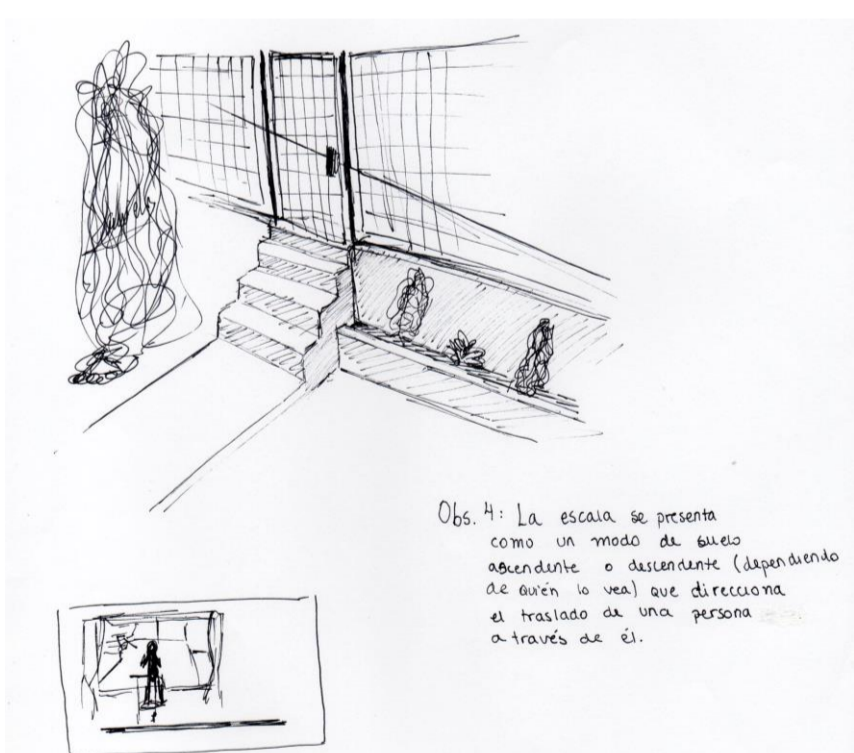 Obs. 4: La escala se presenta
como un modo de suelo
ascendente o descendente (dependiendo
de quién lo vea) que direcciona
el traslado de una persona
a través de él.